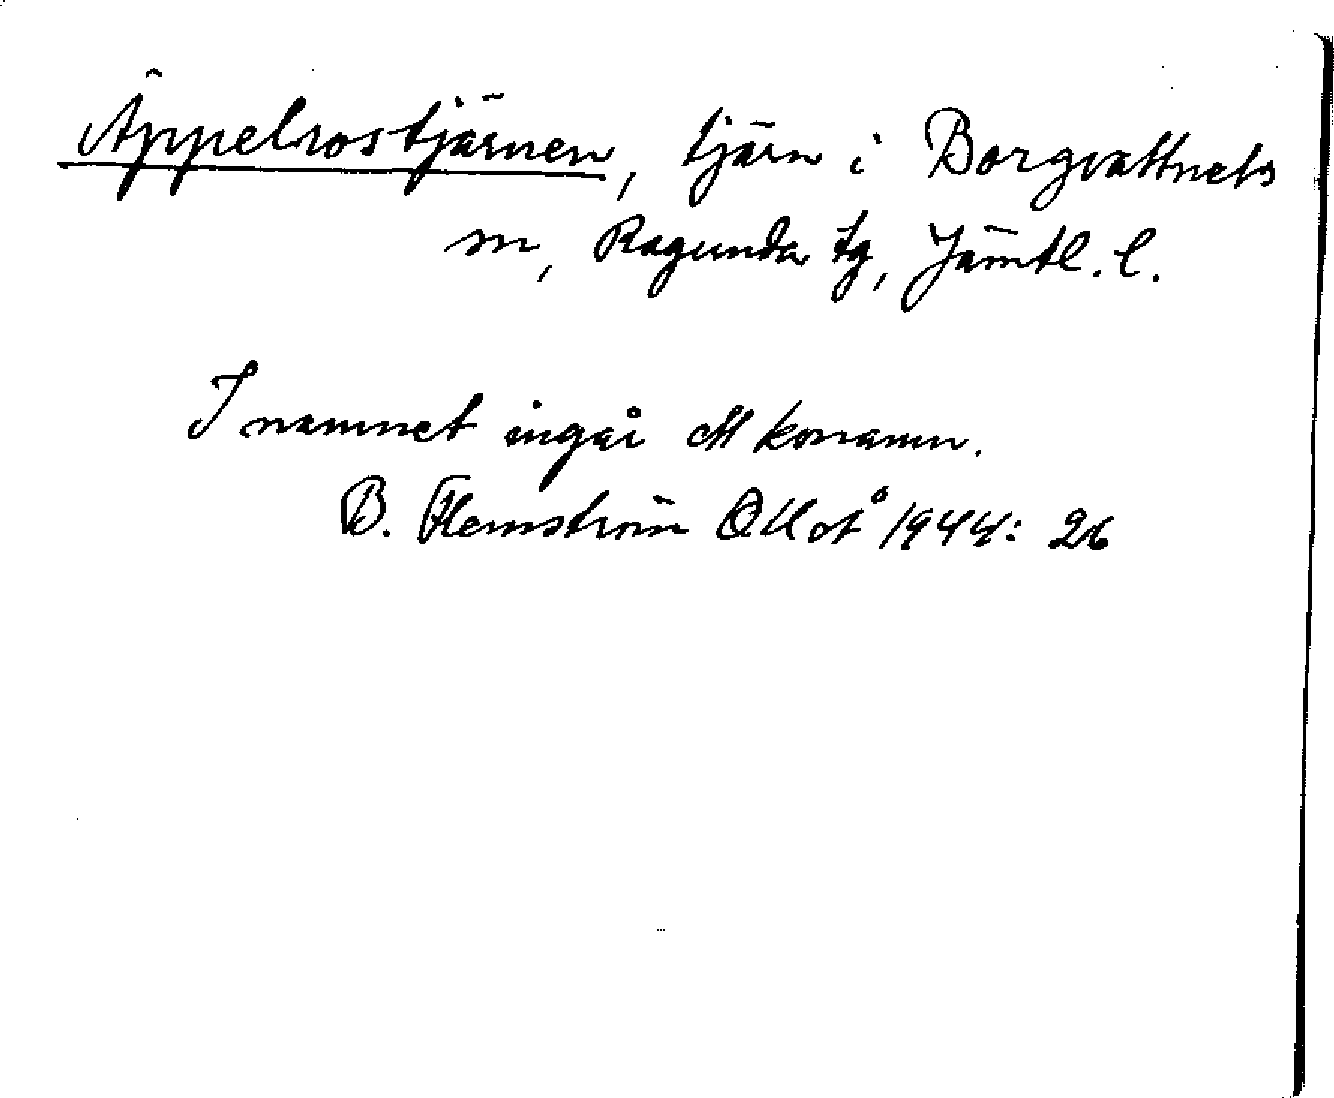 Äppelrostjärnen, tjärn i Borgvattnets
sn, Ragunda tg, Jämtl. l.
I namnet ingår ett konamn.
B. Flemström OUoÅ 1944: 26